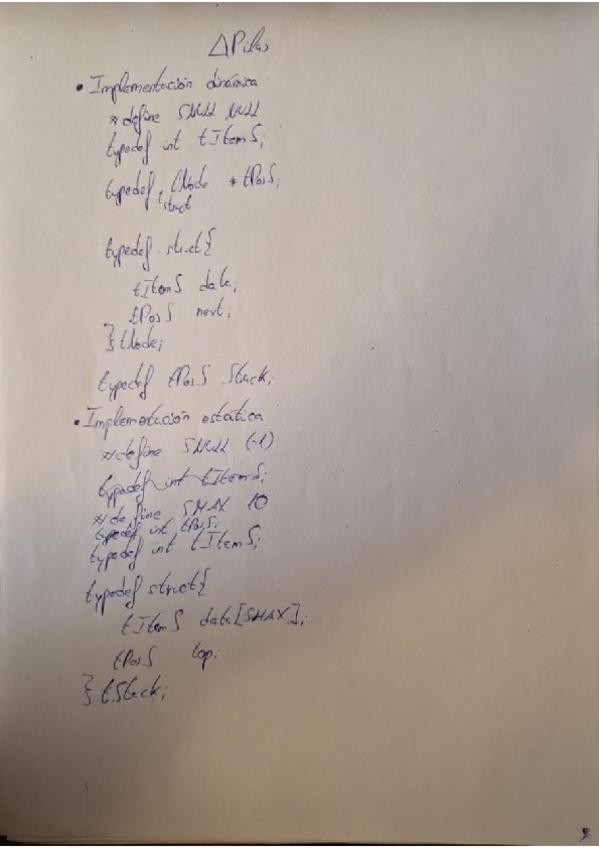 △Pilas
• Implementación dinámica
#define SNULL NULL
typedef int tItemS;
typedef struct tNode *tPosS;
typedef struct{
tItemS data;
tPosS next;
} tNode;
typedef tPosS Stack;
• Implementación estática
#define SNULL (-1)
typedef int tItemS;
#define SMAX 10
typedef int tPosS;
typedef int tItemS;
typedef struct{
tItemS data[SMAX];
tPosS top;
} tStack;